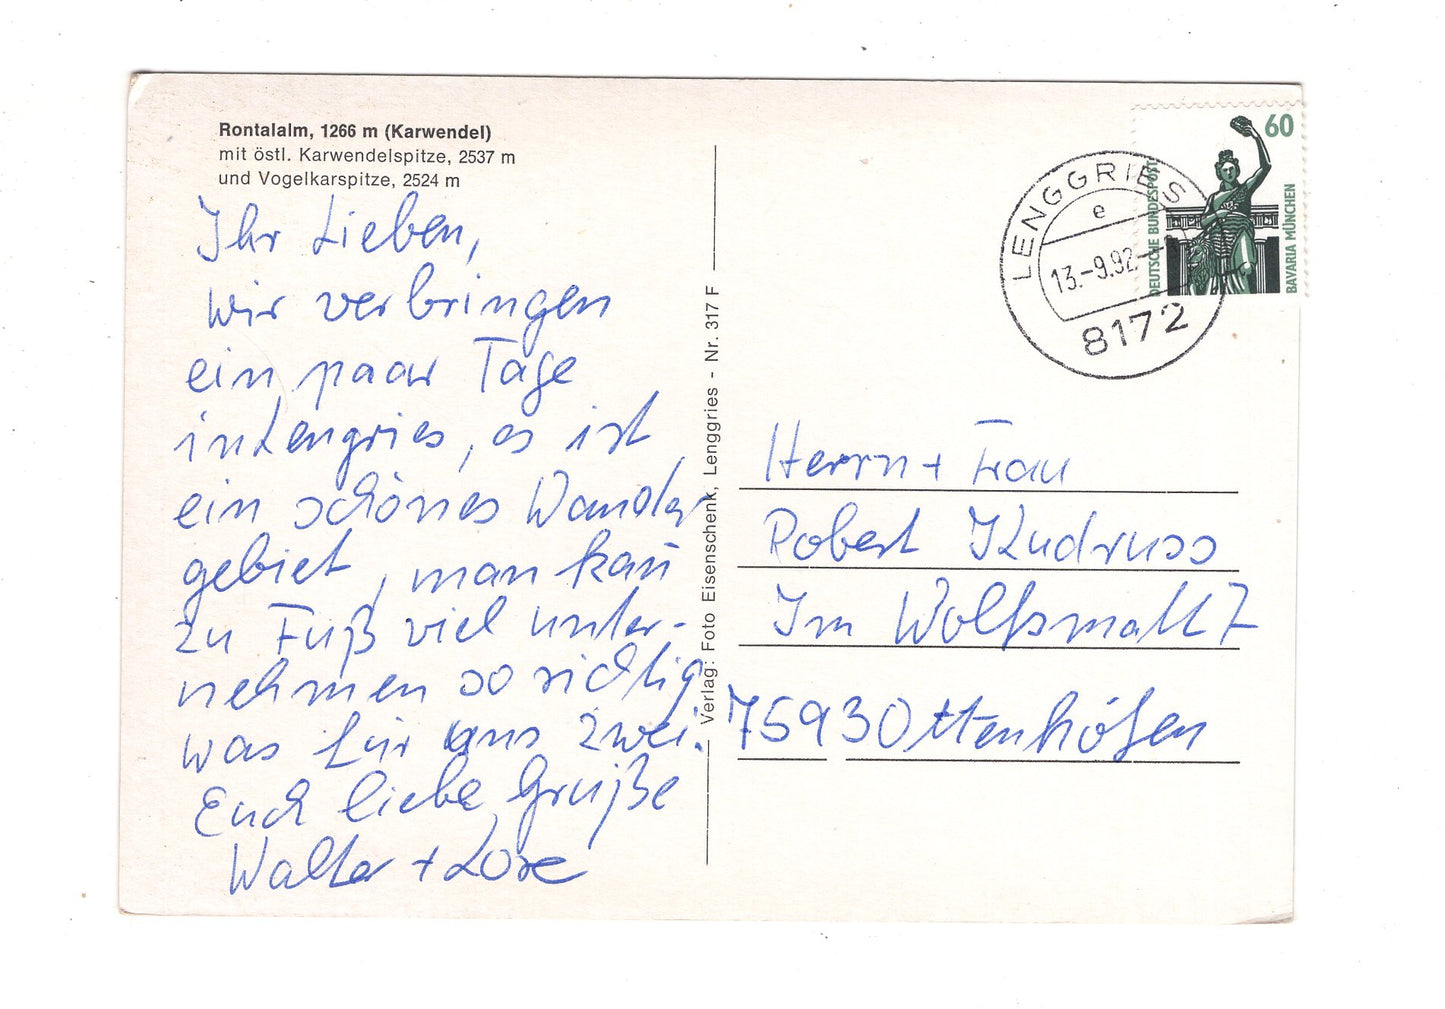 Rontalalm, 1266 m (Karwendel)
mit östl. Karwendelspitze, 2537 m
und Vogelkarspitze, 2524 m
Ihr Lieben,
wir verbringen
ein paar Tage
in Lengries, es ist
ein schönes Wander
gebiet, man kañ
zu Fuß viel unter-
nehmen so richtig
was für uns zwei.
Euch liebe Grüße
Walter + Lore
Verlag: Foto Eisenschenk, Lenggries - Nr. 317 F
LENGGRIES
e
13.-9.92
8172
60
DEUTSCHE BUNDESPOST
BAVARIA MÜNCHEN
Herrn + Frau
Robert Kudruss
Im Wolfsmatt 7
75930ttenhöfen